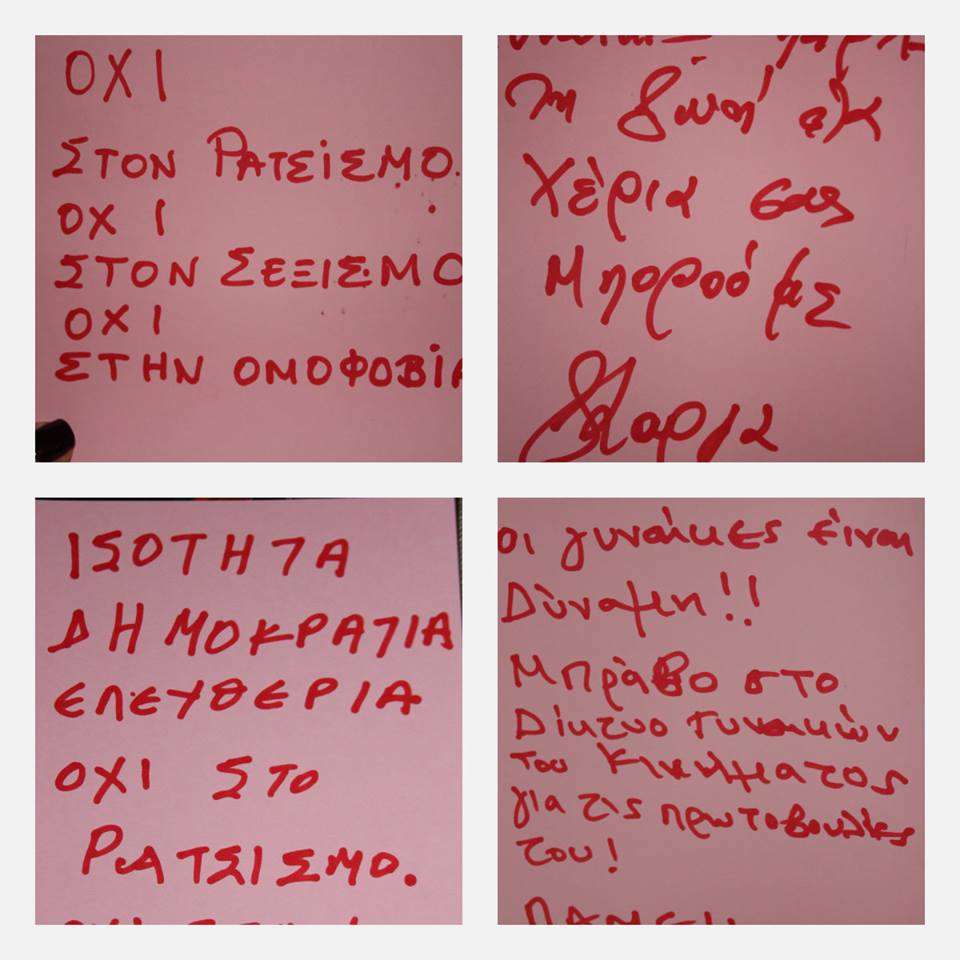 ΟΧΙ
ΣΤΟΝ ΡΑΤΣΙΣΜΟ.
ΟΧΙ
ΣΤΟΝ ΣΕΞΙΣΜΟ
ΟΧΙ
ΣΤΗΝ ΟΜΟΦΟΒΙΑ
τη ζωή στα
Χέρια σας
Μπορούμε
Μαρια
ΙΣΟΤΗΤΑ
ΔΗΜΟΚΡΑΤΙΑ
ΕΛΕΥΘΕΡΙΑ
ΟΧΙ ΣΤΟ
ΡΑΤΣΙΣΜΟ.
οι γυναίκες είναι
Δύναμη!!
Μπράβο στο
Δίκτυο Γυναικών
του Κινήματος
για τις πρωτοβουλίες
του!